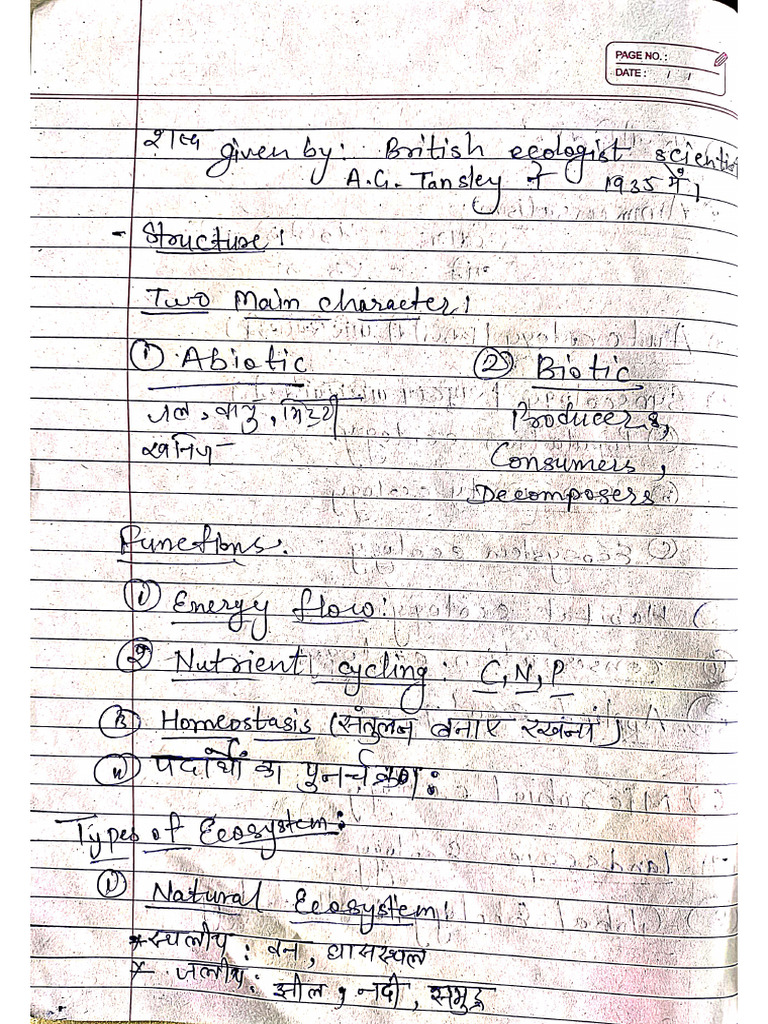 PAGE NO.:
DATE: / /
शब्द given by: British ecologist scientis
A.G. Tansley ने 1935 में।
- Structure:
Two Main character:
① Abiotic ② Biotic
जल, वायु, मिट्टी Producers,
खनिज Consumers,
Decomposers
Functions:
① Energy flow:
② Nutrient cycling: C, N, P
③ Homeostasis (संतुलन बनाए रखना)
④ पदार्थों का पुनर्चक्रण:
Types of Ecosystem:
① Natural Ecosystem:
* स्थलीय: वन, घासस्थल
* जलीय: झील, नदी, समुद्र